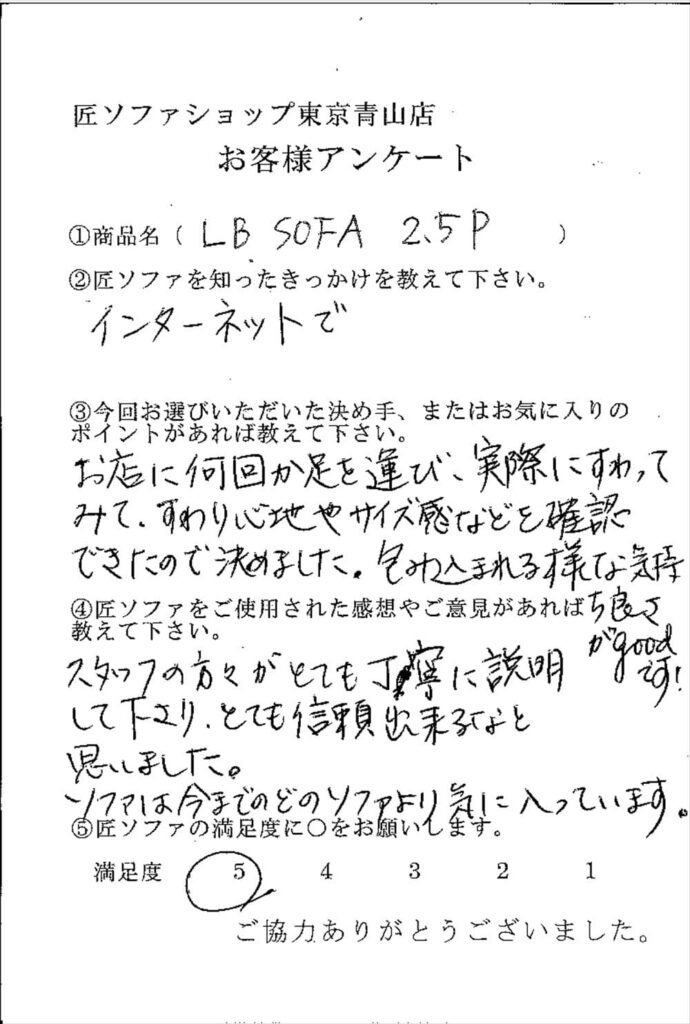 匠ソファショップ東京青山店
お客様アンケート
①商品名（ LB SOFA 2.5P ）
②匠ソファを知ったきっかけを教えて下さい。
インターネットで
③今回お選びいただいた決め手、またはお気に入りの
ポイントがあれば教えて下さい。
お店に何回か足を運び、実際にすわって
みて、すわり心地やサイズ感などを確認
できたので決めました。包み込まれる様な気持
ち良さ
がgood
です!
④匠ソファをご使用された感想やご意見があれば
教えて下さい。
スタッフの方々がとても丁寧に説明
して下さり、とても信頼出来るなと
思いました。
ソファは今までのどのソファより気に入っています。
⑤匠ソファの満足度に〇をお願いします。
満足度 5 4 3 2 1
ご協力ありがとうございました。